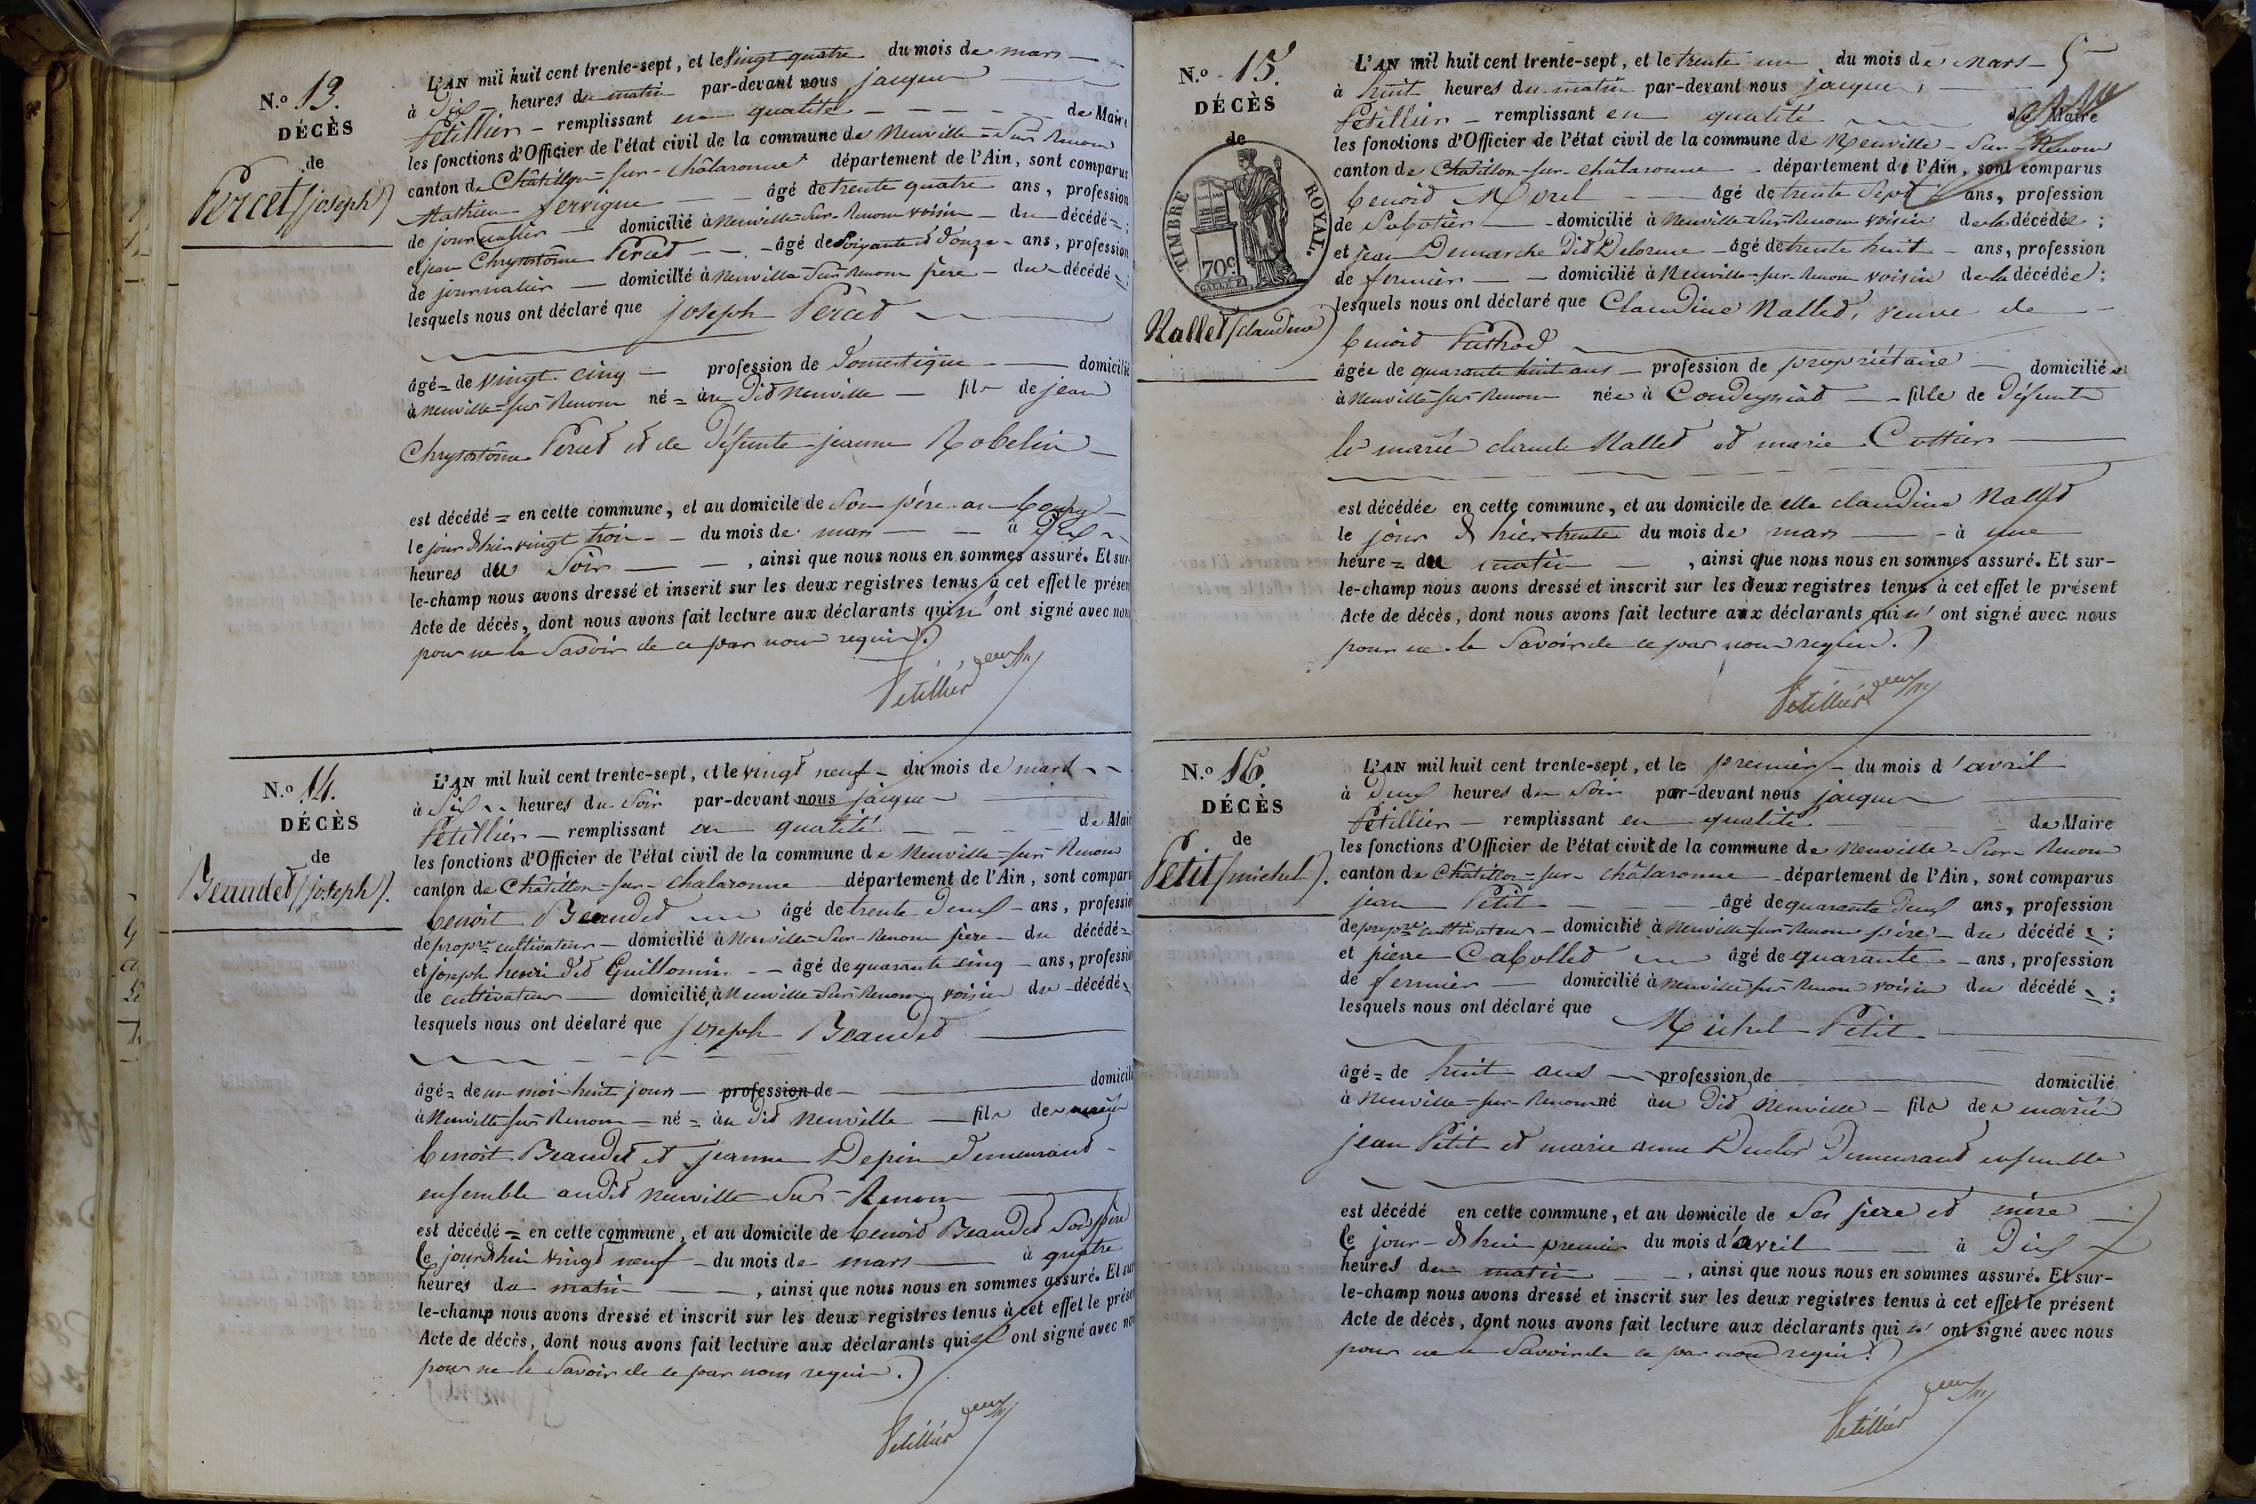 N.º 13.
DÉCÈS
de
Percet (joseph)
L'AN mil huit cent trente-sept, et le vingt quatre du mois de mars
à dix heures du matin par-devant nous jacques
Petillier remplissant en qualité de Maire
les fonctions d'Officier de l'état civil de la commune de Neuville-sur-Renom
canton de Châtillon-sur-châlaronne département de l'Ain, sont comparus
Mathieu Ferrigue âgé de trente quatre ans, profession
de journalier domicilié à Neuville-sur-Renom voisin du décédé ;
et jean Chrysostôme Percet âgé de soixante et douze ans, profession
de journalier domicilié à Neuville-sur-Renom père du décédé ;
lesquels nous ont déclaré que joseph Percet
âgé de vingt cinq profession de domestique domicilié
à Neuville-sur-Renom né au dit Neuville fils de jean
Chrysostôme Percet et de défunte jeanne Robelin
est décédé en cette commune, et au domicile de son père au bourg
le jour d'hier vingt trois du mois de mars à dix
heures du soir, ainsi que nous nous en sommes assuré. Et sur-
le-champ nous avons dressé et inscrit sur les deux registres tenus à cet effet le présent
Acte de décès, dont nous avons fait lecture aux déclarants qui n'ont signé avec nous
pour ne le savoir de ce par nous requis.
Petillier
N.º 14.
DÉCÈS
de
Beaudet (joseph).
L'AN mil huit cent trente-sept, et le vingt neuf du mois de mars
à six heures du soir par-devant nous jacques
Petillier remplissant en qualité de Maire
les fonctions d'Officier de l'état civil de la commune de Neuville-sur-Renom
canton de Châtillon-sur-chalaronne département de l'Ain, sont comparus
benoit Beaudet âgé de trente deux ans, profession
de propre cultivateur domicilié à Neuville-sur-Renom père du décédé
et joseph henri dit Guillomin âgé de quarante cinq ans, profession
de cultivateur domicilié à Neuville-sur-Renom voisin du décédé
lesquels nous ont déclaré que joseph Beaudet
âgé de un mois huit jours profession de domicilié
à Neuville sur Renom né au dit Neuville fils de mariés
benoit Beaudet et jeanne Depin demeurant
ensemble audit Neuville sur-Renom
est décédé en cette commune, et au domicile de benoit Beaudet son père
le jourd'hui vingt neuf du mois de mars à quatre
heures du matin, ainsi que nous nous en sommes assuré. Et sur-
le-champ nous avons dressé et inscrit sur les deux registres tenus à cet effet le présent
Acte de décès, dont nous avons fait lecture aux déclarants qui n'ont signé avec nous
pour ne le savoir de ce par nous requis.
Petillier
N.º 15.
DÉCÈS
de
TIMBRE ROYAL.
70c
Nallet (claudine)
5
L'AN mil huit cent trente-sept, et le trente un du mois de Mars
à huit heures du matin par-devant nous jacques
Petillier remplissant en qualité de Maire
les fonctions d'Officier de l'état civil de la commune de Neuville-sur-Renom
canton de Châtillon-sur-châlaronne département de l'Ain, sont comparus
benoit Morel âgé de trente sept ans, profession
de Sabotier domicilié à Neuville-sur-Renom voisin de la décédée ;
et jean Demarche dit Delorme âgé de trente huit ans, profession
de fermier domicilié à Neuville-sur-Renom voisin de la décédée ;
lesquels nous ont déclaré que Claudine Nallet, veuve de
benoit Puthod
âgée de quarante huit ans profession de propriétaire domiciliée
à Neuville-sur-Renom née à Condeyssiat fille de défunts
les mariés claude Nallet et marie Cottier
est décédée en cette commune, et au domicile de elle claudine Nallet
le jour d'hier trente du mois de mars à une
heure du matin, ainsi que nous nous en sommes assuré. Et sur-
le-champ nous avons dressé et inscrit sur les deux registres tenus à cet effet le présent
Acte de décès, dont nous avons fait lecture aux déclarants qui n'ont signé avec nous
pour ne le savoir de ce par nous requis.
Petillier
N.º 16.
DÉCÈS
de
Petit (michel).
L'AN mil huit cent trente-sept, et le premier du mois d'avril
à deux heures du soir par-devant nous jacques
Petillier remplissant en qualité de Maire
les fonctions d'Officier de l'état civil de la commune de Neuville-sur-Renom
canton de Châtillon-sur-châlaronne département de l'Ain, sont comparus
jean Petit âgé de quarante deux ans, profession
de propre cultivateur domicilié à Neuville-sur-Renom père du décédé ;
et pierre Cabollet âgé de quarante ans, profession
de fermier domicilié à Neuville-sur-Renom voisin du décédé ;
lesquels nous ont déclaré que Michel Petit
âgé de huit ans profession de domicilié
à Neuville-sur-Renom né au dit Neuville fils des mariés
jean Petit et marie anne demeurant ensemble
est décédé en cette commune, et au domicile de ses père et mère
le jour d'hui premier du mois d'avril à dix
heures du matin, ainsi que nous nous en sommes assuré. Et sur-
le-champ nous avons dressé et inscrit sur les deux registres tenus à cet effet le présent
Acte de décès, dont nous avons fait lecture aux déclarants qui n'ont signé avec nous
pour ne le savoir de ce par nous requis.
Petillier